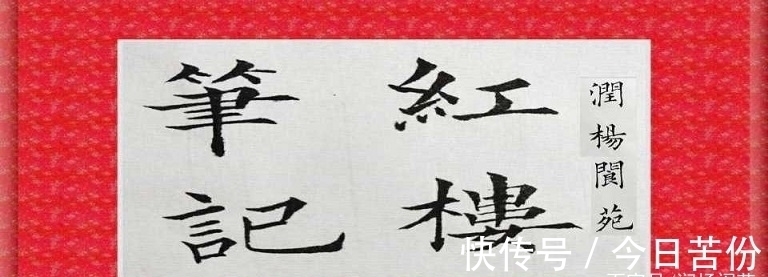 潤楊閬苑
紅樓
筆記
快传号 / 今日苦份